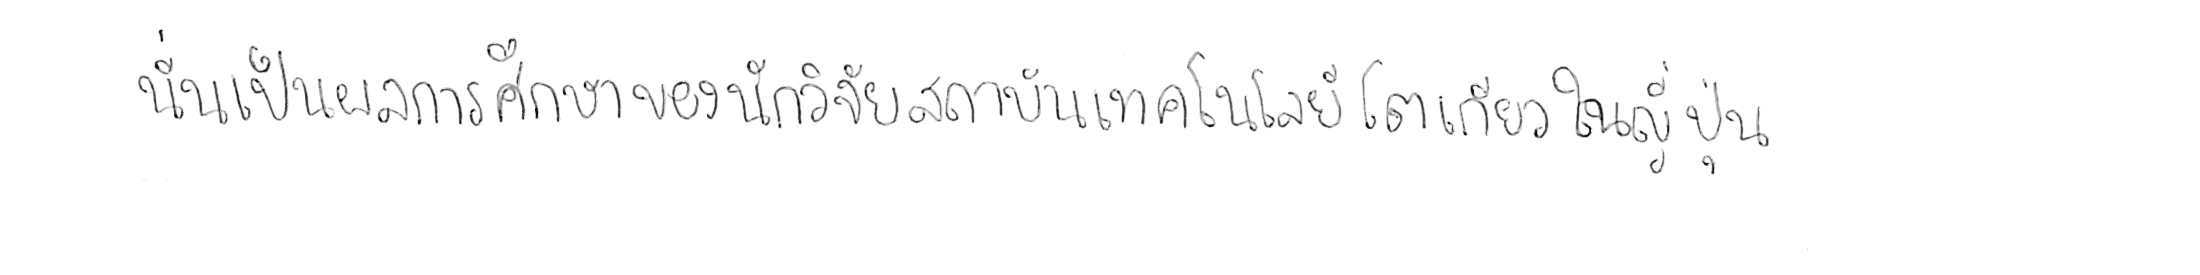 นี่นเป็นผลการศึกษาของนักวิจัยสถาบันเทคโนโลยีโตเกียวในญี่ปุ่น